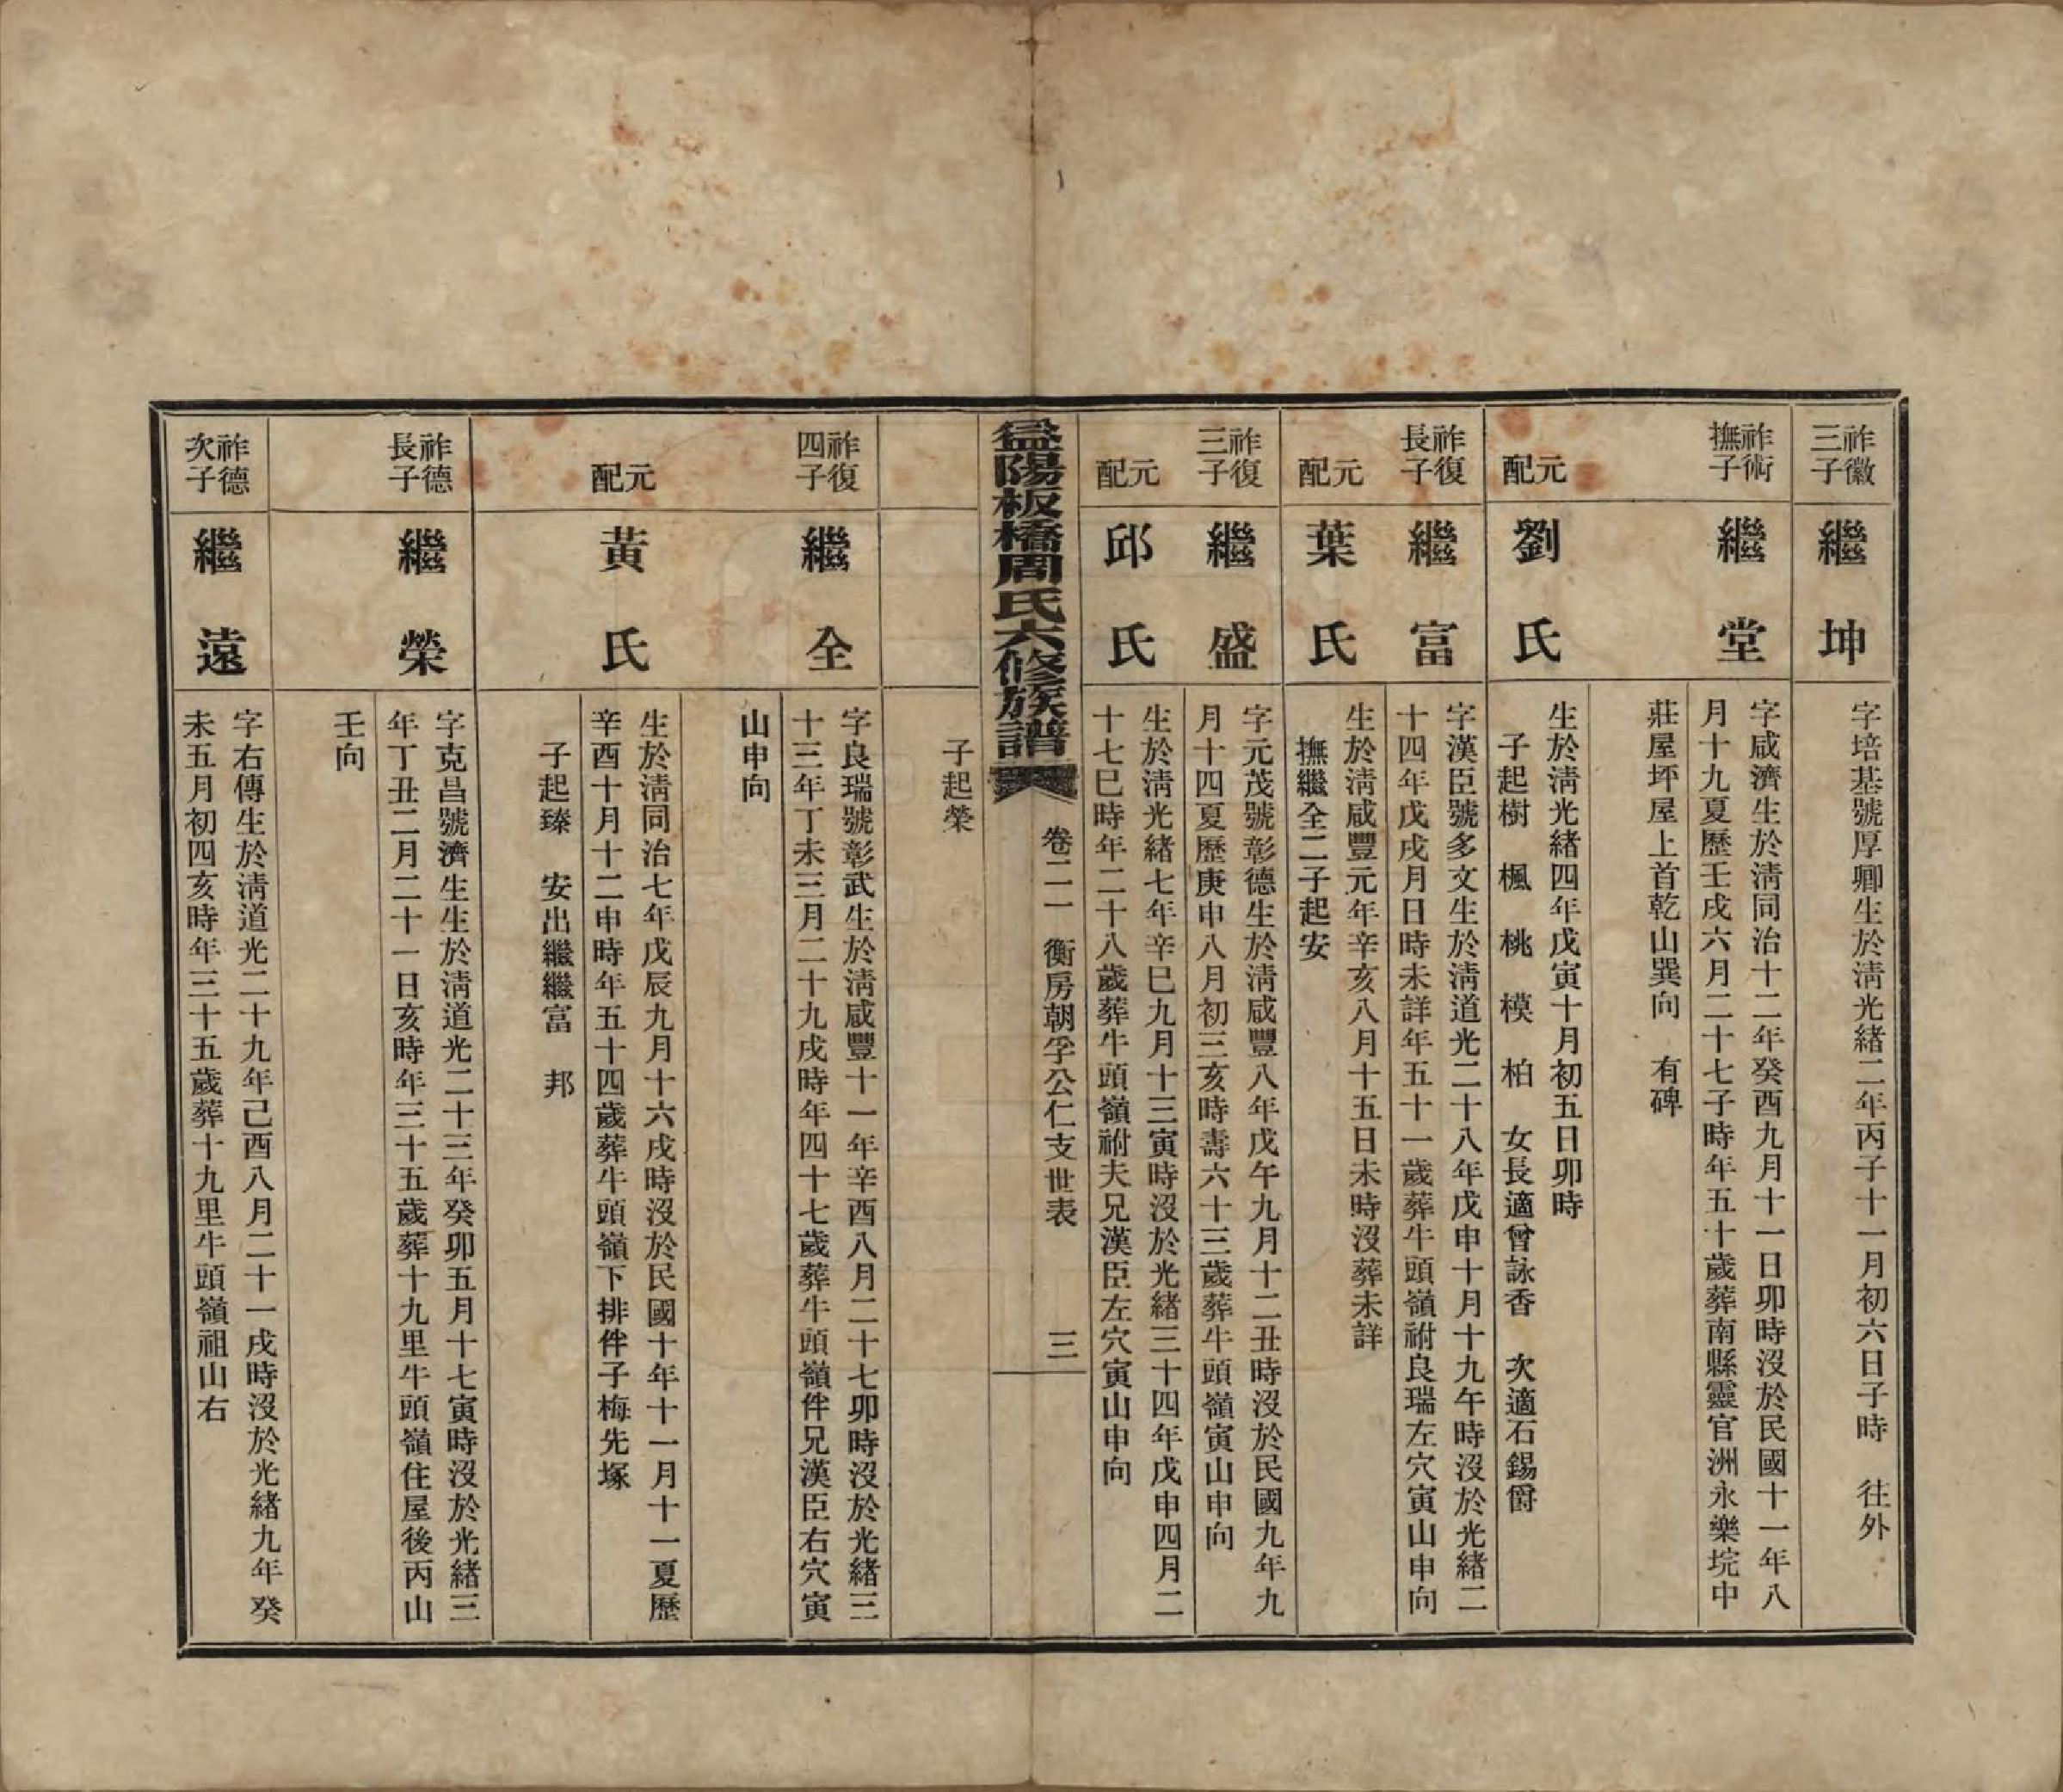 祚徽
三子
繼坤
字培基號厚卿生於淸光緒二年丙子十一月初六日子時　往外
祚術
撫子
繼堂
字咸濟生於淸同治十二年癸酉九月十一日卯時沒於民國十一年八
月十九夏歷壬戌六月二十七子時年五十歲葬南縣靈官洲永樂垸中
莊屋坪屋上首乾山巽向　有碑
元配
劉氏
生於淸光緒四年戊寅十月初五日卯時
子起樹　楓　桃　模　柏　女長適曾詠香　次適石錫爵
祚復
長子
繼富
字漢臣號多文生於淸道光二十八年戊申十月十九午時沒於光緒二
十四年戊戌月日時未詳年五十一歲葬牛頭嶺祔良瑞左穴寅山申向
元配
葉氏
生於淸咸豐元年辛亥八月十五日未時沒葬未詳
撫繼全二子起安
祚復
三子
繼盛
字元茂號彰德生於淸咸豐八年戊午九月十二丑時沒於民國九年九
月十四夏歷庚申八月初三亥時壽六十三歲葬牛頭嶺寅山申向
元配
邱氏
生於淸光緒七年辛巳九月十三寅時沒於光緒三十四年戊申四月二
十七巳時年二十八歲葬牛頭嶺祔夫兄漢臣左穴寅山申向
益陽板橋周氏六修族譜
卷二一　衡房朝孚公仁支世表
三
子起榮
祚復
四子
繼全
字良瑞號彰武生於淸咸豐十一年辛酉八月二十七卯時沒於光緒三
十三年丁未三月二十九戌時年四十七歲葬牛頭嶺伴兄漢臣右穴寅
山申向
元配
黃氏
生於淸同治七年戊辰九月十六戌時沒於民國十年十一月十一夏歷
辛酉十月十二申時年五十四歲葬牛頭嶺下排伴子梅先塚
子起臻　安出繼繼富　邦
祚德
長子
繼榮
字克昌號濟生生於淸道光二十三年癸卯五月十七寅時沒於光緒三
年丁丑二月二十一日亥時年三十五歲葬十九里牛頭嶺住屋後丙山
壬向
祚德
次子
繼遠
字右傳生於淸道光二十九年己酉八月二十一戌時沒於光緒九年癸
未五月初四亥時年三十五歲葬十九里牛頭嶺祖山右